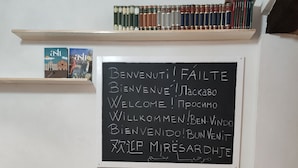 BENVENUTI! FÁILTE
BIENVENUE! Ласкаво
WELCOME! Просимо
WILLKOMMEN! BEM-VINDO
BIENVENIDO! BUN VENIT
欢迎 MIRËSARDHJE